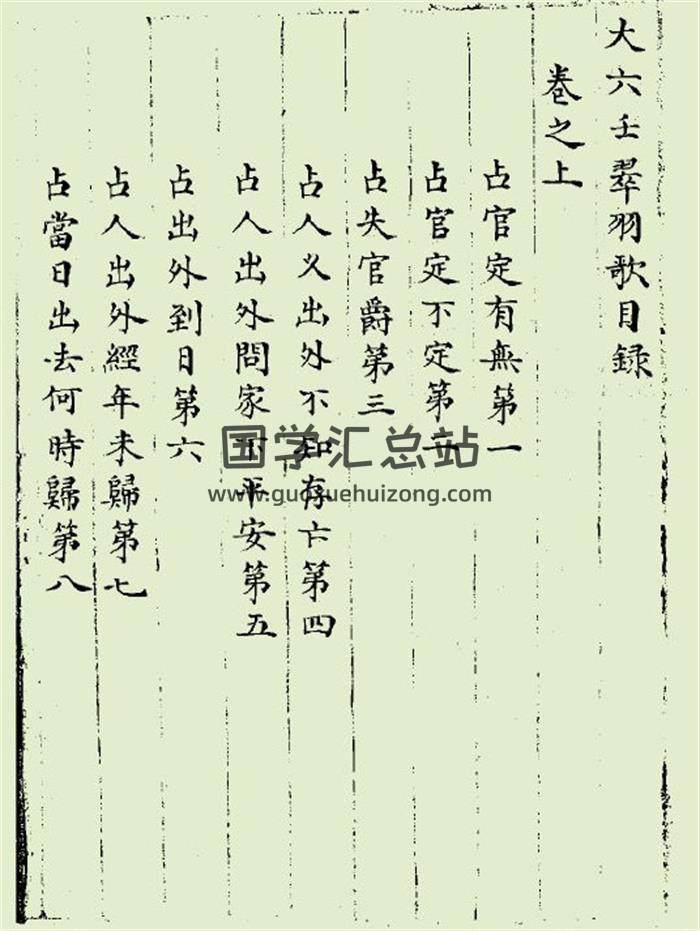 大六壬翠羽歌目録
卷之上
占官定有無第一
占官定不定第二
占失官爵第三
占人久出外不知存亡第四
占人出外問家下平安第五
占出外到日第六
占人出外經年未歸第七
占當日出去何時歸第八
国学汇总站
www.guoxuehuizong.com